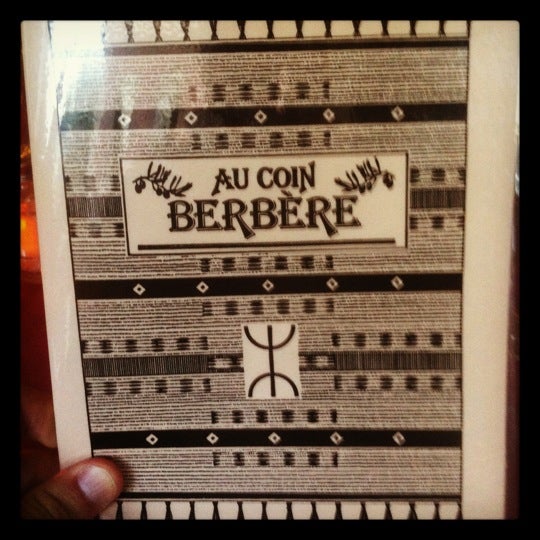 AU COIN
BERBÈRE
ⵣ